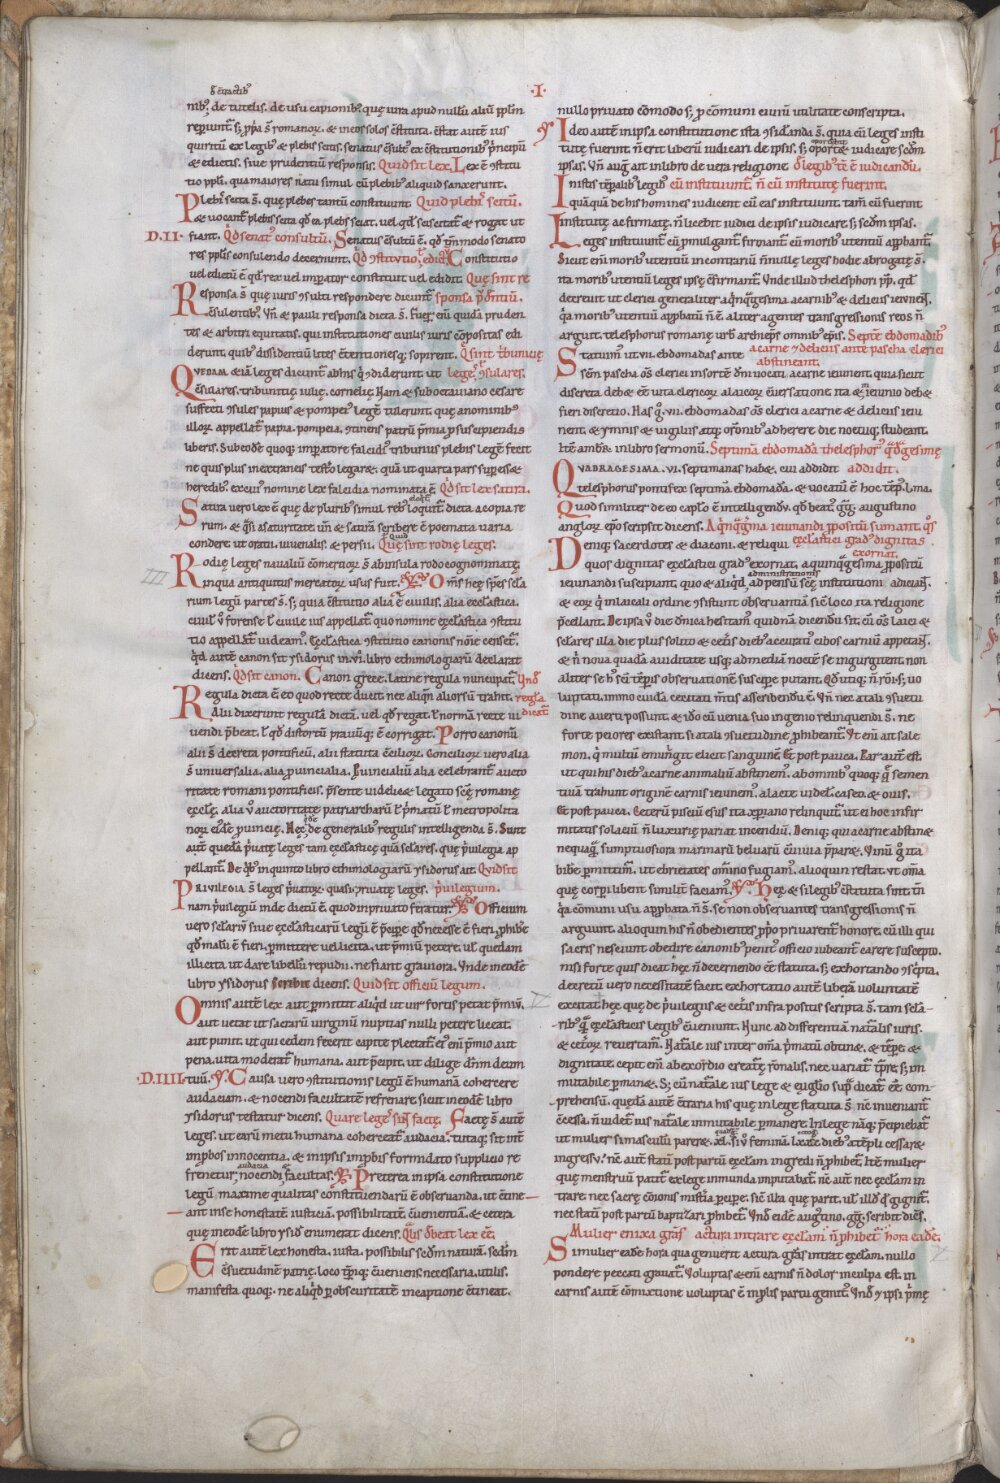 ·I·
nib;, de tutelis. de usu capionib; quę iura apud nullū aliū pplm
reperiunt͛. s; ꝓpria s̄ romanoꝝ. & in eos solos c̄stituta. c̄stat autē ius
quiritū ex legib; & plebis scitis. senatus c̄sultꝰ ex c̄stitutionib; prīcipū
& edictis. siue prudentiū responsis. Quid sit lex. Lex ē ꝯstitu
tio ppłi. qua maiores natu simul cū plebib; aliquid sanxerunt.
Plebiscita s̄. quę plebes tantū constituunt. Quid plebiscitū.
& uocant͛ plebiscita qđ ea plebs sciat. uel qđ sciscitat͛ & rogat ut
D.II. fiant. Qđ senatꝰ consultū. Senatus c̄sultū ē. qđ tm̄modo senato
res ppłis consulendo decernunt. Qđ ꝯstitutio ł edictū. Constitutio
uel edictū ē qđ rex uel imperator constituit uel edidit. Quę sint re
Responsa s̄ quę iuris ꝯsulti respondere dicunt͛ sponsa prudentiū.
c̄sulentibꝰ. Vn̄ & pauli responsa dicta s̄. Fuer͛ eni quidā pruden
tes & arbitri equitatis. qui institutiones ciuilis iuris cōpositas edi
derunt. quibꝰ dissidentiū lites c̄tentionesq; sopirent. Quę sint tribunicię
QVEDAM &iā leges dicunt͛ ab his qⁱ ꝯdiderunt. ut leges ꝯsulares.
c̄sulares. tribunitię. iulię. cornelię. Nam & sub octauiano cesare
suffecti ꝯsules papius & pompeiꝰ legē tulerunt. quę a nominibꝰ
illoꝝ appellat͛ papia. pompeia. ꝯtinens patrū p̄mia ꝓ suscipiendis
liberis. Sub eodē quoq; imperatore falcidiꝰ tribunus plebis legē fecit
ne quis plus in extraneis testo legar&. quā ut quarta pars supess&
heredibꝰ. ex cuiꝰ nomine lex falcidia nominata ē. Qđ sit lex satira.
Satira uero lex ē quę de pluribꝰ simul rebꝰ loquit͛. dicta a copia re
rum. & qⁱsi a saturitate. un̄ & satirā scribere ē poemata uaria
condere. ut oratii. iuuenalis. & persii. Quę sint rodię leges.
Rodię leges naualiū cōmercioꝝ s̄ ab insula rodo cognominatę.
in qua antiquitus mercatoꝝ usus fuit. Om̄s hę spēs secla
rium legū partes s̄. s; quia c̄stitutio alia ē ciuilis. alia eccłastica.
ciuilꝰ ū forense ł ciuile ius appellat͛. quo nomine eccłastica ꝯstitu
tio appellat͛ uideamꝰ. Eccłastica ꝯstitutio canonis noīe censet͛.
Qⁱd autē canon sit ysidorus in .vi. libro ethimologiarū declarat
dicens. Qđ sit canon. Canon grece. latine regula nuncupat͛. Vnđ
Regula dicta ē eo quod recte ducit. nec aliqn̄ aliorsū trahit. regła
Alii dixerunt regulā dictā. uel qđ regat. ł normā recte ui dicat͛
uendi p̄beat. ł qđ distortū prauūq; ē corrigat. Porro canonū
alii s̄ decreta pontificū. alii statuta c̄cilioꝝ. Concilioꝝ uero alia
s̄ uniuersalia. alia ꝓuincialia. Prouincialiū alia celebrant͛ aucto
ritate romani pontificis. p̄sente uidelic& legato scę romanę
eccłę. alia ū auctoritate patriarcharū ł p̄matū ł metropolita
noꝝ eiꝰdē ꝓuincię. Hęc de generalibꝰ regulis intelligenda s̄. Sunt
aut quedā p̄uatę leges tam eccłasticę quā sclares. quę p̄uilegia ap
pellant͛. De qⁱbꝰ in quinto libro ethimologiarū ysidorus ait. Quid sit
PRIVILEGIA s̄ leges p̄uatoꝝ. quasi p̄uatę leges. p̄uilegium.
nam p̄uilegiū inde dictū ē. quod in priuato feratur. Officium
uero sclariū siue eccłasticarū legū ē p̄cipe. qđ necesse ē fieri. ꝓhibe
qđ malū ē fieri. ꝑmittere uel licita. ut p̄miū petere. ul quedam
illicita. ut dare libellū repudii. ne fiant grauiora. Vnde in eodē
libro ysidorus scribit dicens. Quid sit officiū legum.
Omnis autē lex aut ꝑmittit aliqⁱd ut uir fortis petat p̄miū.
aut uetat. ut sacrarū uirginū nuptias nulli petere liceat.
aut punit. ut qui cedem fecerit capite plectat͛. eiꝰ eni p̄mio aut
pena uita moderat͛ humana. aut p̄cipit. ut diliges dn̄m deum
D.IIII. tuū. Causa uero ꝯstitutionis legū ē humanā cohercere
audaciam. & nocendi facultatē refrenare. sicut in eodē libro
ysidorus testatur dicens. Quare leges sint factę. Factę s̄ autē
leges. ut earū metu humana cohereat͛ audacia. tutaq; sit int͛
imꝓbos innocentia. & in ipsis imꝓbis formidato supplicio re
frenetur nocendi facultas. Preterea in ipsa constitutione
legū maxime qualitas constituendarū ē obseruanda. ut c̄tine
ant in se honestatē. iusticiā. possibilitatē. c̄uenientiā. & cetera
quę in eodē libro ysiđ enumerat dicens. Qualis debeat lex eē.
Erit autē lex honesta. iusta. possibilis. scđm naturā. scđm
c̄suetudinē patrię. loco t̄pīq; c̄ueniens. necessaria. utilis.
manifesta quoq; ne aliqⁱd ꝑ obscuritatē in captione c̄tineat.
nullo priuato cōmodo s; ꝓ cōmuni ciuiū utilitate conscripta.
Ideo autē in ipsa constitutione ista ꝯsiđanda s̄. quia cū leges insti
tutę fuerint. n̄ erit liberū iudicari de ipsis. s; oport& iudicare scđm
ipsas. Vn̄ aug͛ ait in libro de uera religione. De legibꝰ tē ē iudicandū.
In istis tēpalibꝰ legibꝰ cū instituunt͛. n̄ cū institutę fuerint.
quāquā de his homines iudicent cū eas instituunt. tam̄ cū fuerint
institutę ac firmatę. n̄ licebit iudici de ipsis iudicare. s; scđm ipsas.
Leges instituunt͛ cū ꝓmulgant͛. firmant͛ cū moribꝰ utentiū apꝓbant͛.
Sicut eni moribꝰ utentiū in contrariū nonnullę leges hodie abrogatę s̄.
ita moribꝰ utentiū leges ipsę c̄firmant͛. Vnde illud thelesphori pp̄. qđ
decreuit ut clerici generaliter a qⁱnqⁱgesima a carnibꝰ & deliciis ieiunēt.
qⁱa moribꝰ utentiū apꝓbatū n̄ ē. aliter agentes transgressionis reos n̄
arguit. telesphorus romanę urbis archiep̄s omnibꝰ ep̄is. Septē ebdomadibꝰ
Statuimꝰ ut .vii. ebdomadas ante a carne & deliciis ante pascha clerici
abstineant.
scm̄ pascha om̄s clerici in sortē dn̄i uocati. a carne ieiunent. quia sicut
discreta deb& eē uita clericoꝝ a laicoꝝ c̄uersatione. ita & in ieiunio deb&
fieri discretio. Has gͦ .vii. ebdomadas om̄s clerici a carne & deliciis ieiu
nent. & ymnis & uigiliis atq; or̄onibꝰ adherere die noctuq; studeant.
Itē ambr͛ in libro sermonū. Septimā ebdomadā thelesphorꝰ qⁱdgesimę
QVADRAGESIMA .vi. septimanas habe&. cui addidit addidit.
telesphorus pontifex septimā ebdomadā. & uocatū ē hoc tēpꝰ .l.ma.
Quod similiter de eo capło ē intelligendū. qđ beatꝰ greg͛. augustino
angloꝝ ep̄o scripsit dicens. A qⁱnqⁱgesima ieiunandi ꝓpositū sumant. quos
Deniq; sacerdotes & diaconi. & reliqui eccłastici gradꝰ dignitas
exornat.
quos dignitas eccłastici gradꝰ exornat. a quinquagesima ꝓpositū
ieiunandi suscipiant. quo & aliqⁱd ad pensū scę institutioni adiciāt.
& eoꝝ qⁱ in laicali ordine ꝯsistunt obseruantiā sic̄ loco ita religione
p̄cellant. De ipsa ū die dn̄ica hesitam quidnā dicendū sit. cū om̄s laici &
sclares illa die plus solito & cet͛is diebꝰ accuratiꝰ cibos carniū appetant.
& n̄ noua quadā auiditate usq; ad mediā noctē se ingurgitent. non
aliter se hꝰ sci t̄pis obseruationē suscipe putant. Qđ utiq; n̄ rōni. s; uo
luptati. immo cuidā cecitati mentis asscribendū ē. Vn̄ nec a tali ꝯsuetu
dine auerti possunt. & idō cū uenia suo ingenio relinquendi s̄. ne
forte peiores existant. si a tali ꝯsuetudine ꝓhibeant͛. Vt eni ait salo
mon. qⁱ multū emungit elicit sanguinē. Et post pauca. Par aut̄ est.
ut qui his diebꝰ a carne animaliū abstinemꝰ. ab omnibꝰ quoq; quę semen
tiuā trahunt originē carnis ieiunemꝰ. a lacte uidel&. caseo. & ouis.
Et post pauca. Ceterū pisciū esus ita xp̄iano relinquit͛. ut ei hoc infir
mitatis solaciū. n̄ luxurię pariat incendiū. Deniq; qui a carne abstin&
nequaquā sumptuosiora marinarū beluarū c̄uiuia p̄par&. Vinū gͦ ita
bibe ꝑmittim. ut ebrietatē omnino fugiamꝰ. alioquin restat. ut om̄a
quę corpri libent similit͛ faciamꝰ. Hęc & si legibꝰ c̄stituta sint. tn̄
qⁱa cōmuni usu apꝓbata n̄ s̄. se non obseruantes transgressionis n̄
arguunt. alioquin his n̄ obedientes ꝓprio priuarent͛ honore. cū illi qui
sacris nesciunt obedire canonibꝰ penitꝰ officio iubeant͛ carere suscepto.
nisi forte quis dicat hęc n̄ decernendo eē statuta. s; exhortando ꝯscripta.
decretū uero necessitatē facit. exhortatio autē liberā uoluntatē
excitat. hęc quę de p̄uilegiis & cet͛is infra positis scripta s̄. tam scla
ribꝰ qⁱ eccłasticis legibꝰ c̄ueniunt. Nunc ad differentiā nat͛alis iuris.
& cet͛oꝝ reuertamꝰ. Nat͛ale ius inter om̄a p̄matū obtin&. & t̄pe. &
dignitate. cepit eni ab exordio creatę rōnalis. nec uariat͛ t̄pre. s; im
mutabile ꝑman&. S; cū nat͛ale ius lege & euḡlio supͣ dicat͛ eē com
prehensū. quędā autē c̄traria his quę in lege statuta s̄ nc̄ inueniant͛
c̄cessa. n̄ uidet͛ ius nat͛ale inmutabile ꝑmanere. In lege nāq; p̄cipiebat͛
ut mulier si masculū parer& .xl. si ū feminā .lxxx. diebꝰ a tēpli cessar&
ingressu. nc̄ autē statī post partū eccłam ingredi n̄ ꝓhibet͛. Itē mulier
quę menstruū patit͛ ex lege inmunda imputabat͛. nc̄ aut̄ nec eccłam in
trare. nec sacrę cōionis mistīa ꝑcipe. sic̄ illa quę parit. ul illđ qđ gignit͛.
nec statī post partū baptizari ꝓhibet͛. Vnđ eidē augustino .gg͛. scribit dicēs.
Mulier enixa grās actura intrare eccłam n̄ ꝓhibet͛ hora eadē.
Si mulier eadē hora qua genuerit actura grās intrat eccłam. nullo
pondere peccati grauat͛. Voluptas &eni carnis n̄ dolor in culpa est. in
carnis autē cōmixtione uoluptas ē. in ꝓlis partu gemitꝰ. Vnđ & ipsi primę